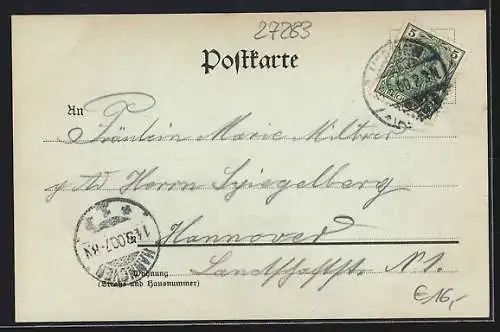 27283
Postkarte
5 5
An
Fräulein Marie
p. Ad. Herrn Spiegelberg
14.5.00.7-8N
HANNOVER
in Hannover
Wohnung
(Straße und Hausnummer)
Landschaftstr. N 1.
€16,-